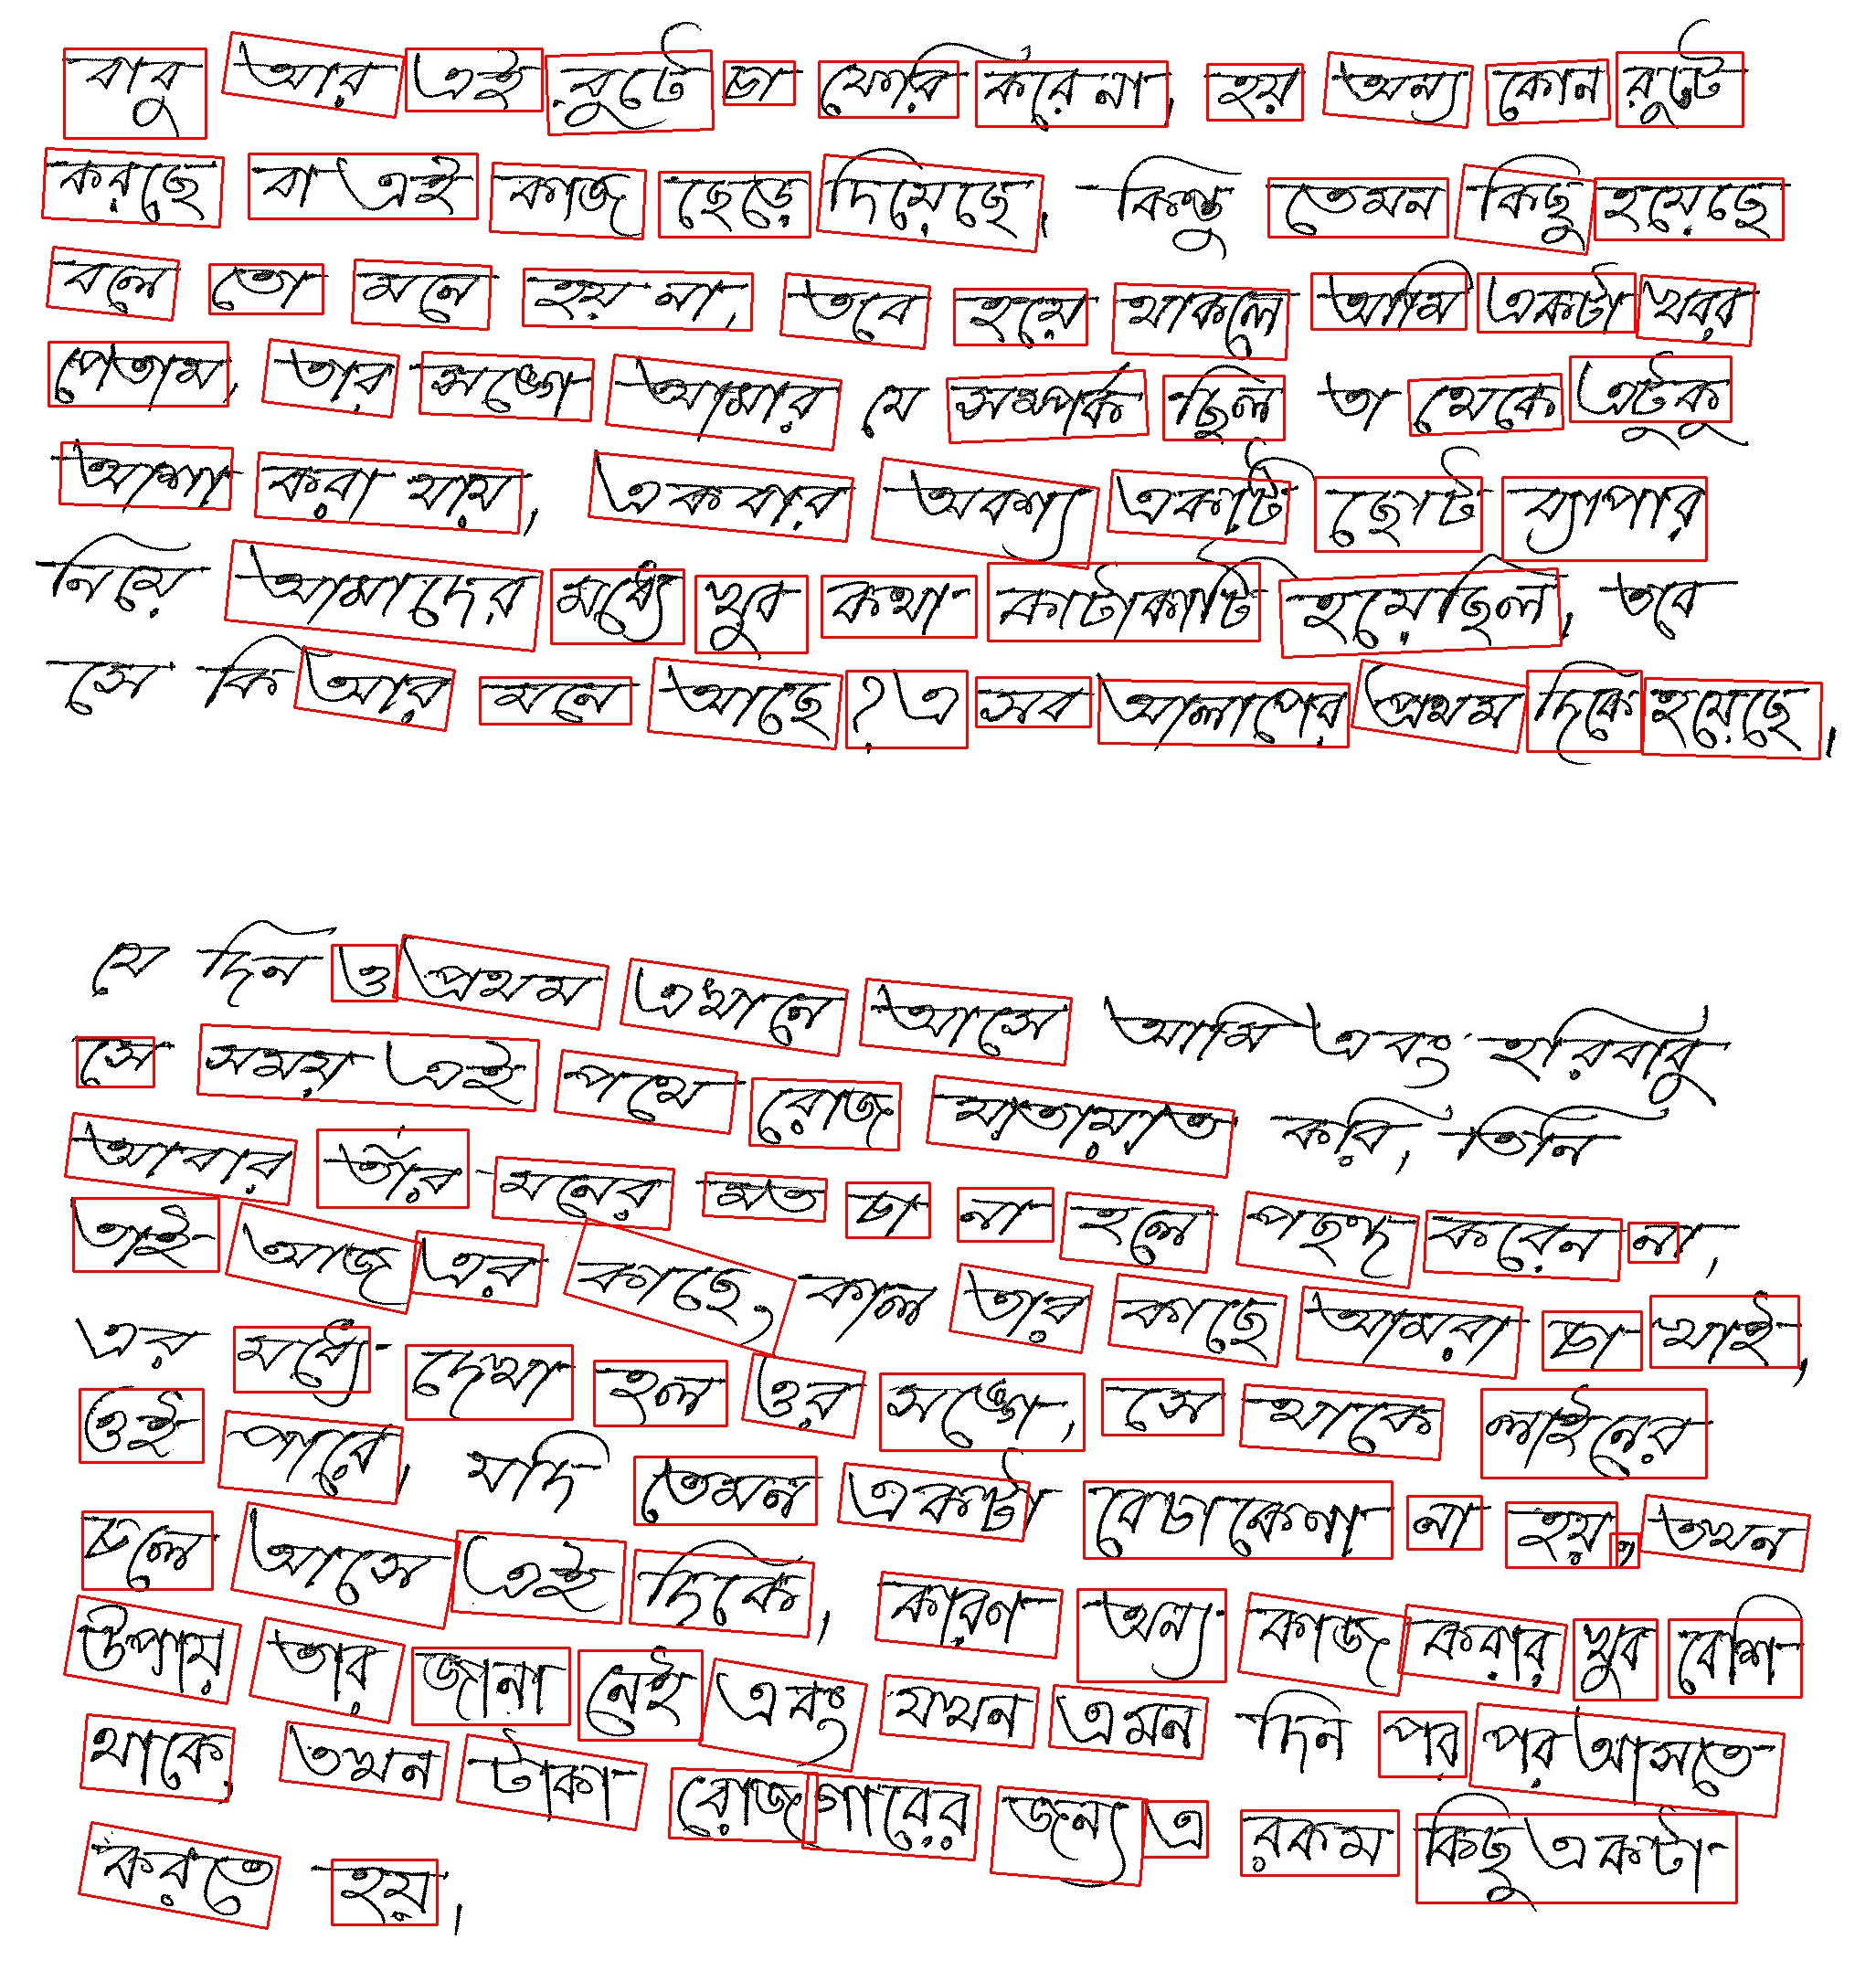 বাবু আর এই রুটে চা ফেরি করে না, হয় অন্য কোন রুটে
করছে বা এই কাজ ছেড়ে দিয়েছে, কিন্তু তেমন কিছু হয়েছে
বলে তো মনে হয় না, তবে হয়ে থাকলে আমি একটা খবর
পেতাম, তার সঙ্গে আমার যে সম্পর্ক ছিল তা থেকে এটুকু
আশা করা যায়, একবার অবশ্য একটি ছোট ব্যাপার
নিয়ে আমাদের মধ্যে খুব কথা কাটাকাটি হয়েছিল, তবে
সে কি আর মনে আছে? এ সব আলাপের প্রথম দিকে হয়েছে,
যে দিন ও প্রথম এখানে আসে আমি এবং হরিবাবু
সে সময় এই পথে রোজ যাতায়াত করি, তিনি
আবার তাঁর মনের মত চা না হলে পছন্দ করেন না,
তাই আজ এর কাছে, কাল তার কাছে আমরা চা খাই,
এর মধ্যে দেখা হল ওর সঙ্গে, সে থাকে লাইনের
ওই পারে, যদি তেমন একটা বেচাকেনা না হয়, তখন
চলে আসে এই দিকে, কারণ অন্য কাজ করার খুব বেশি
উপায় তার জানা নেই এবং যখন এমন দিন পর পর আসতে
থাকে, তখন টাকা রোজগারের জন্য এ রকম কিছু একটা
করতে হয়,